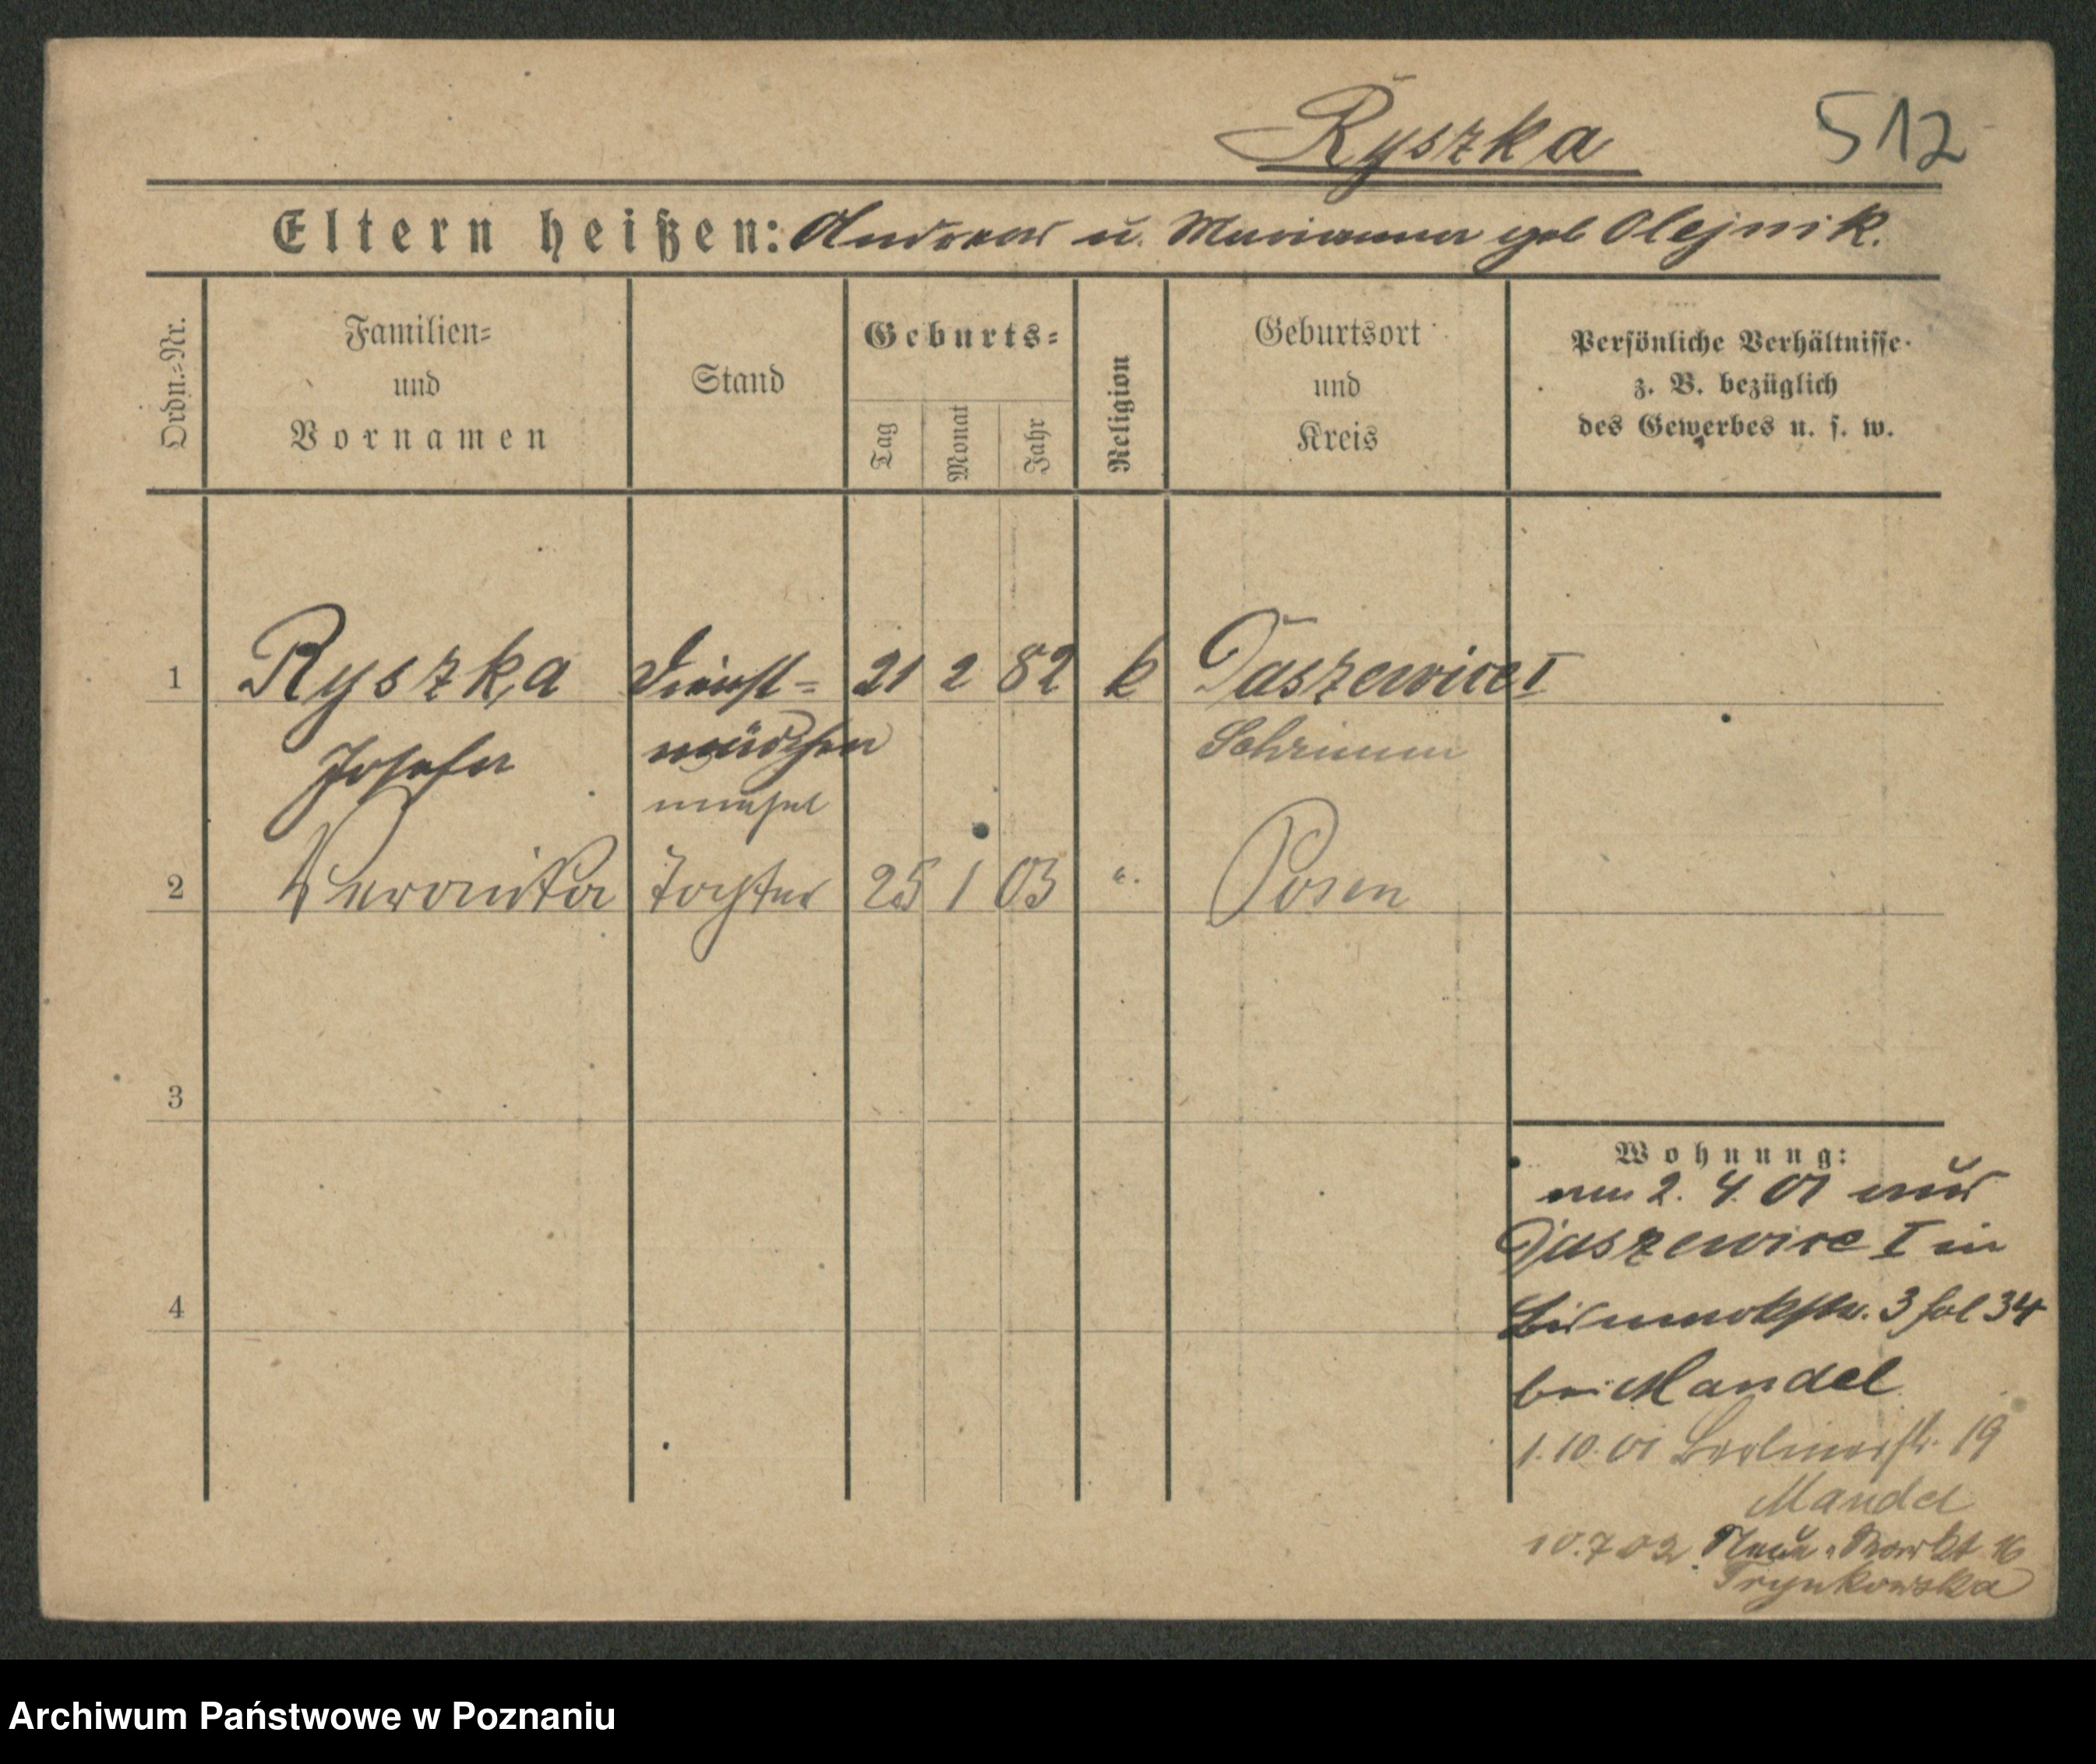 Ryszka 512
Eltern heißen: Andreas u. Marianna geb Olejnik.
Ordn.=Nr.
Familien=
und
Vornamen
Stand
Geburts=
Tag Monat Jahr
Religion
Geburtsort
und
Kreis
Persönliche Verhältnisse
z. B. bezüglich
des Gewerbes u. s. w.
1 Ryszka Dienst= 21 2 82 k Daszewice I
Josefa mädchen Schrimm
unehel
2 Veronika Tochter 25 1 03 ". Posen
3
4
Wohnung:
am 2. 4. 01 aus
Daszewice I in
Bismarckstr. 3 fol 34
bei Mandel
1.10.01 Berlinerstr. 19
Mandel
10.7 02. Neuer Markt 16
Trynkowska
Archiwum Państwowe w Poznaniu